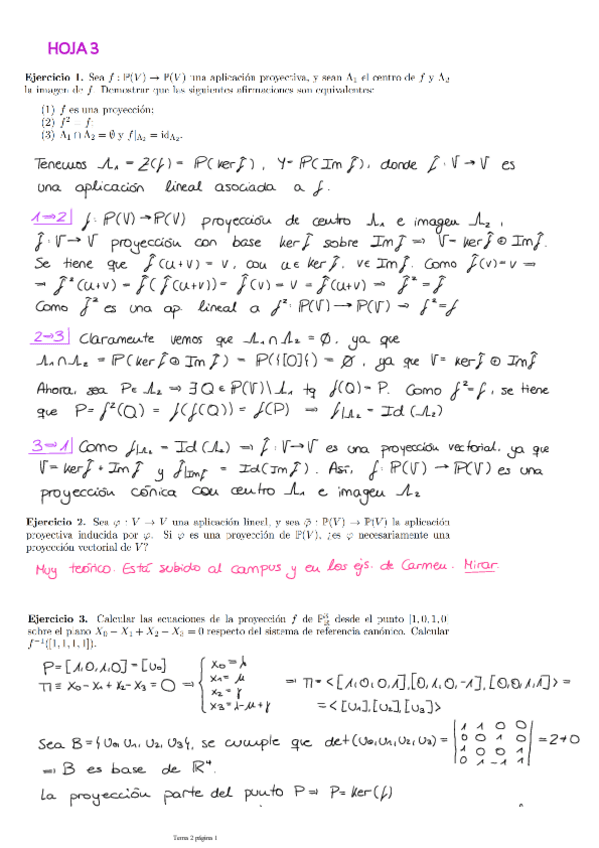 HOJA 3
Ejercicio 1. Sea f : P(V) → P(V) una aplicación proyectiva, y sean Λ₁ el centro de f y Λ₂
la imagen de f. Demostrar que las siguientes afirmaciones son equivalentes:
(1) f es una proyección;
(2) f² = f;
(3) Λ₁ ∩ Λ₂ = ∅ y f|Λ₂ = idΛ₂.
Tenemos Λ₁ = Z(f) = P(ker f̂), Y = P(Im f̂), donde f̂: V → V es
una aplicación lineal asociada a f.
1⇒2| f: P(V) → P(V) proyección de centro Λ₁ e imagen Λ₂,
f̂: V → V proyección con base ker f̂ sobre Im f̂ ⇒ V = ker f̂ ⊕ Im f̂.
Se tiene que f̂(u+v) = v, con u ∈ ker f̂, v ∈ Im f̂. Como f̂(v) = v ⇒
⇒ f̂²(u+v) = f̂(f̂(u+v)) = f̂(v) = v = f̂(u+v) ⇒ f̂² = f̂
Como f̂² es una ap. lineal a f²: P(V) → P(V) ⇒ f² = f
2⇒3| Claramente vemos que Λ₁ ∩ Λ₂ = ∅, ya que
Λ₁ ∩ Λ₂ = P(ker f̂ ⊕ Im f̂) = P({[0]}) = ∅, ya que V = ker f̂ ⊕ Im f̂
Ahora, sea P ∈ Λ₂ ⇒ ∃ Q ∈ P(V)\Λ₁ tq f(Q) = P. Como f² = f, se tiene
que P = f²(Q) = f(f(Q)) = f(P) ⇒ f|Λ₂ = Id(Λ₂)
3⇒1| Como f|Λ₂ = Id(Λ₂) ⇒ f̂: V → V es una proyección vectorial, ya que
V = ker f̂ + Im f̂ y f̂|Im f̂ = Id(Im f̂). Así, f: P(V) → P(V) es una
proyección cónica con centro Λ₁ e imagen Λ₂
Ejercicio 2. Sea φ : V → V una aplicación lineal, y sea φ̄ : P(V) → P(V) la aplicación
proyectiva inducida por φ. Si φ es una proyección de P(V), ¿es φ necesariamente una
proyección vectorial de V?
Muy teórico. Está subido al campus y en los ejs. de Carmen. Mirar.
Ejercicio 3. Calcular las ecuaciones de la proyección f de P³ desde el punto [1, 0, 1, 0]
sobre el plano X₀ − X₁ + X₂ − X₃ = 0 respecto del sistema de referencia canónico. Calcular
f⁻¹([1, 1, 1, 1]).
P = [1, 0, 1, 0] = [u₀]
Π ≡ x₀ − x₁ + x₂ − x₃ = 0 ⇒ { x₀ = λ
x₁ = μ
x₂ = γ
x₃ = λ − μ + γ
⇒ Π = <[1, 0, 0, 1], [0, 1, 0, −1], [0, 0, 1, 1]> =
= <[u₁], [u₂], [u₃]>
Sea B = {u₀, u₁, u₂, u₃}, se cumple que det(u₀, u₁, u₂, u₃) = |1 1 0 0
0 0 1 0
1 0 0 1
0 1 −1 1| = 2 ≠ 0
⇒ B es base de R⁴.
La proyección parte del punto P ⇒ P = ker(f)
Tema 2 página 1